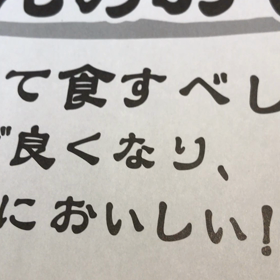 て食すべし
良くなり、
においしい!